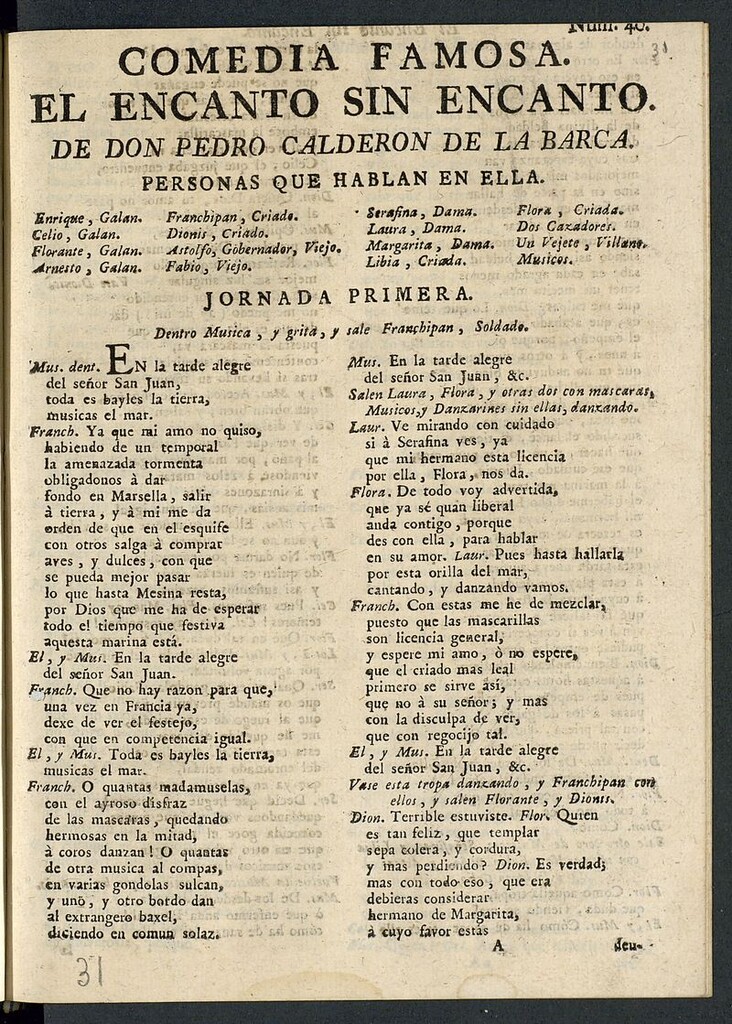 Num. 40.
31
COMEDIA FAMOSA.
EL ENCANTO SIN ENCANTO.
DE DON PEDRO CALDERON DE LA BARCA.
PERSONAS QUE HABLAN EN ELLA.
Enrique, Galan.
Celio, Galan.
Florante, Galan.
Arnesto, Galan.
Franchipan, Criado.
Dionis, Criado.
Astolfo, Gobernador, Viejo.
Fabio, Viejo.
Serafina, Dama.
Laura, Dama.
Margarita, Dama.
Libia, Criada.
Flora, Criada.
Dos Cazadores.
Un Vejete, Villano.
Musicos.
JORNADA PRIMERA.
Dentro Musica, y grita, y sale Franchipan, Soldado.
Mus. dent. EN la tarde alegre
del señor San Juan,
toda es bayles la tierra,
musicas el mar.
Franch. Ya que mi amo no quiso,
habiendo de un temporal
la amenazada tormenta
obligadonos à dar
fondo en Marsella, salir
à tierra, y à mi me da
orden de que en el esquife
con otros salga à comprar
aves, y dulces, con que
se pueda mejor pasar
lo que hasta Mesina resta,
por Dios que me ha de esperar
todo el tiempo que festiva
aquesta marina está.
El, y Mus. En la tarde alegre
del señor San Juan.
Franch. Que no hay razon para que,
una vez en Francia ya,
dexe de ver el festejo,
con que en competencia igual.
El, y Mus. Toda es bayles la tierra,
musicas el mar.
Franch. O quantas madamuselas,
con el ayroso disfraz
de las mascaras, quedando
hermosas en la mitad,
à coros danzan! O quantas
de otra musica al compas,
en varias gondolas sulcan,
y uno, y otro bordo dan
al extrangero baxel,
diciendo en comun solaz.
Mus. En la tarde alegre
del señor San Juan, &c.
Salen Laura, Flora, y otras dos con mascaras,
Musicos, y Danzarines sin ellas, danzando.
Laur. Ve mirando con cuidado
si à Serafina ves, ya
que mi hermano esta licencia
por ella, Flora, nos da.
Flora. De todo voy advertida,
que ya sé quan liberal
anda contigo, porque
des con ella, para hablar
en su amor. Laur. Pues hasta hallarla
por esta orilla del mar,
cantando, y danzando vamos.
Franch. Con estas me he de mezclar,
puesto que las mascarillas
son licencia general,
y espere mi amo, ò no espere,
que el criado mas leal
primero se sirve asi,
que no à su señor; y mas
con la disculpa de ver,
que con regocijo tal.
El, y Mus. En la tarde alegre
del señor San Juan, &c.
Vase esta tropa danzando, y Franchipan con
ellos, y salen Florante, y Dionis.
Dion. Terrible estuviste. Flor. Quien
es tan feliz, que templar
sepa colera, y cordura,
y mas perdiendo? Dion. Es verdad;
mas con todo eso, que era
debieras considerar
hermano de Margarita,
à cuyo favor estás
A
deu-
31